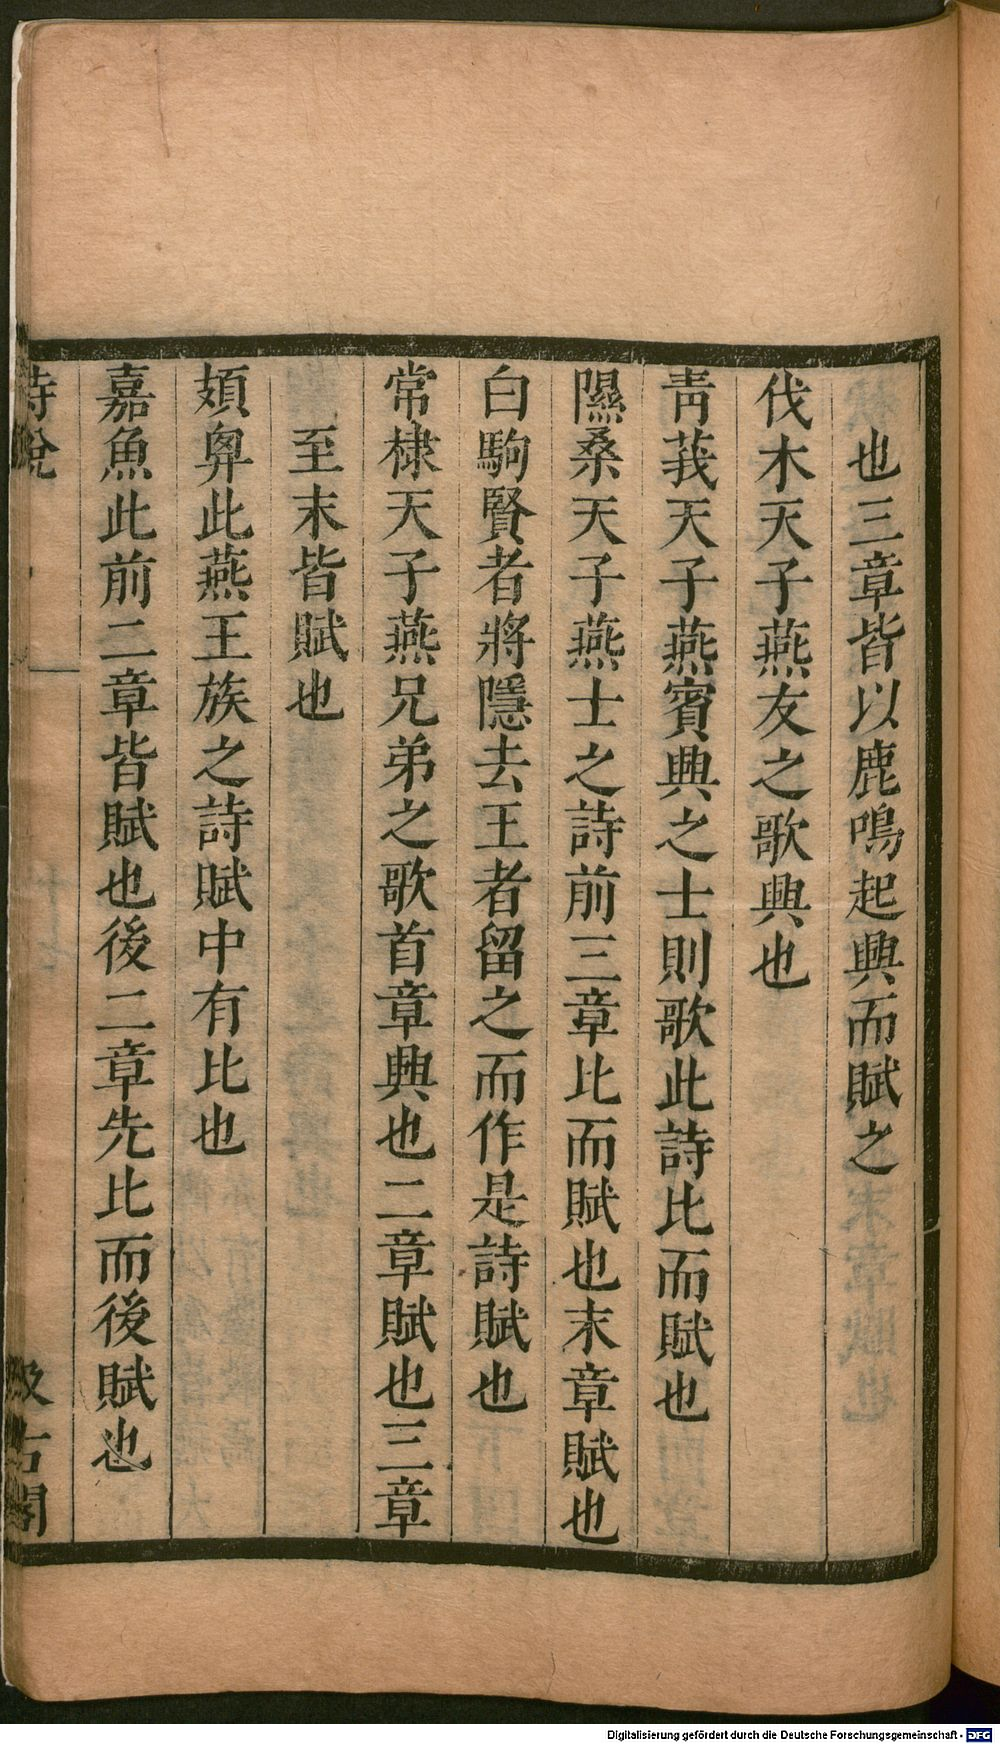 也三章皆以鹿鳴起興而賦之
伐木天子燕友之歌興也
靑莪天子燕賓興之士則歌此詩比而賦也
隰桑天子燕士之詩前三章比而賦也末章賦也
白駒賢者將隱去王者留之而作是詩賦也
常棣天子燕兄弟之歌首章興也二章賦也三章
至末皆賦也
頍弁此燕王族之詩賦中有比也
嘉魚此前二章皆賦也後二章先比而後賦也
詩說
汲古閣
Digitalisierung gefördert durch die Deutsche Forschungsgemeinschaft - DFG